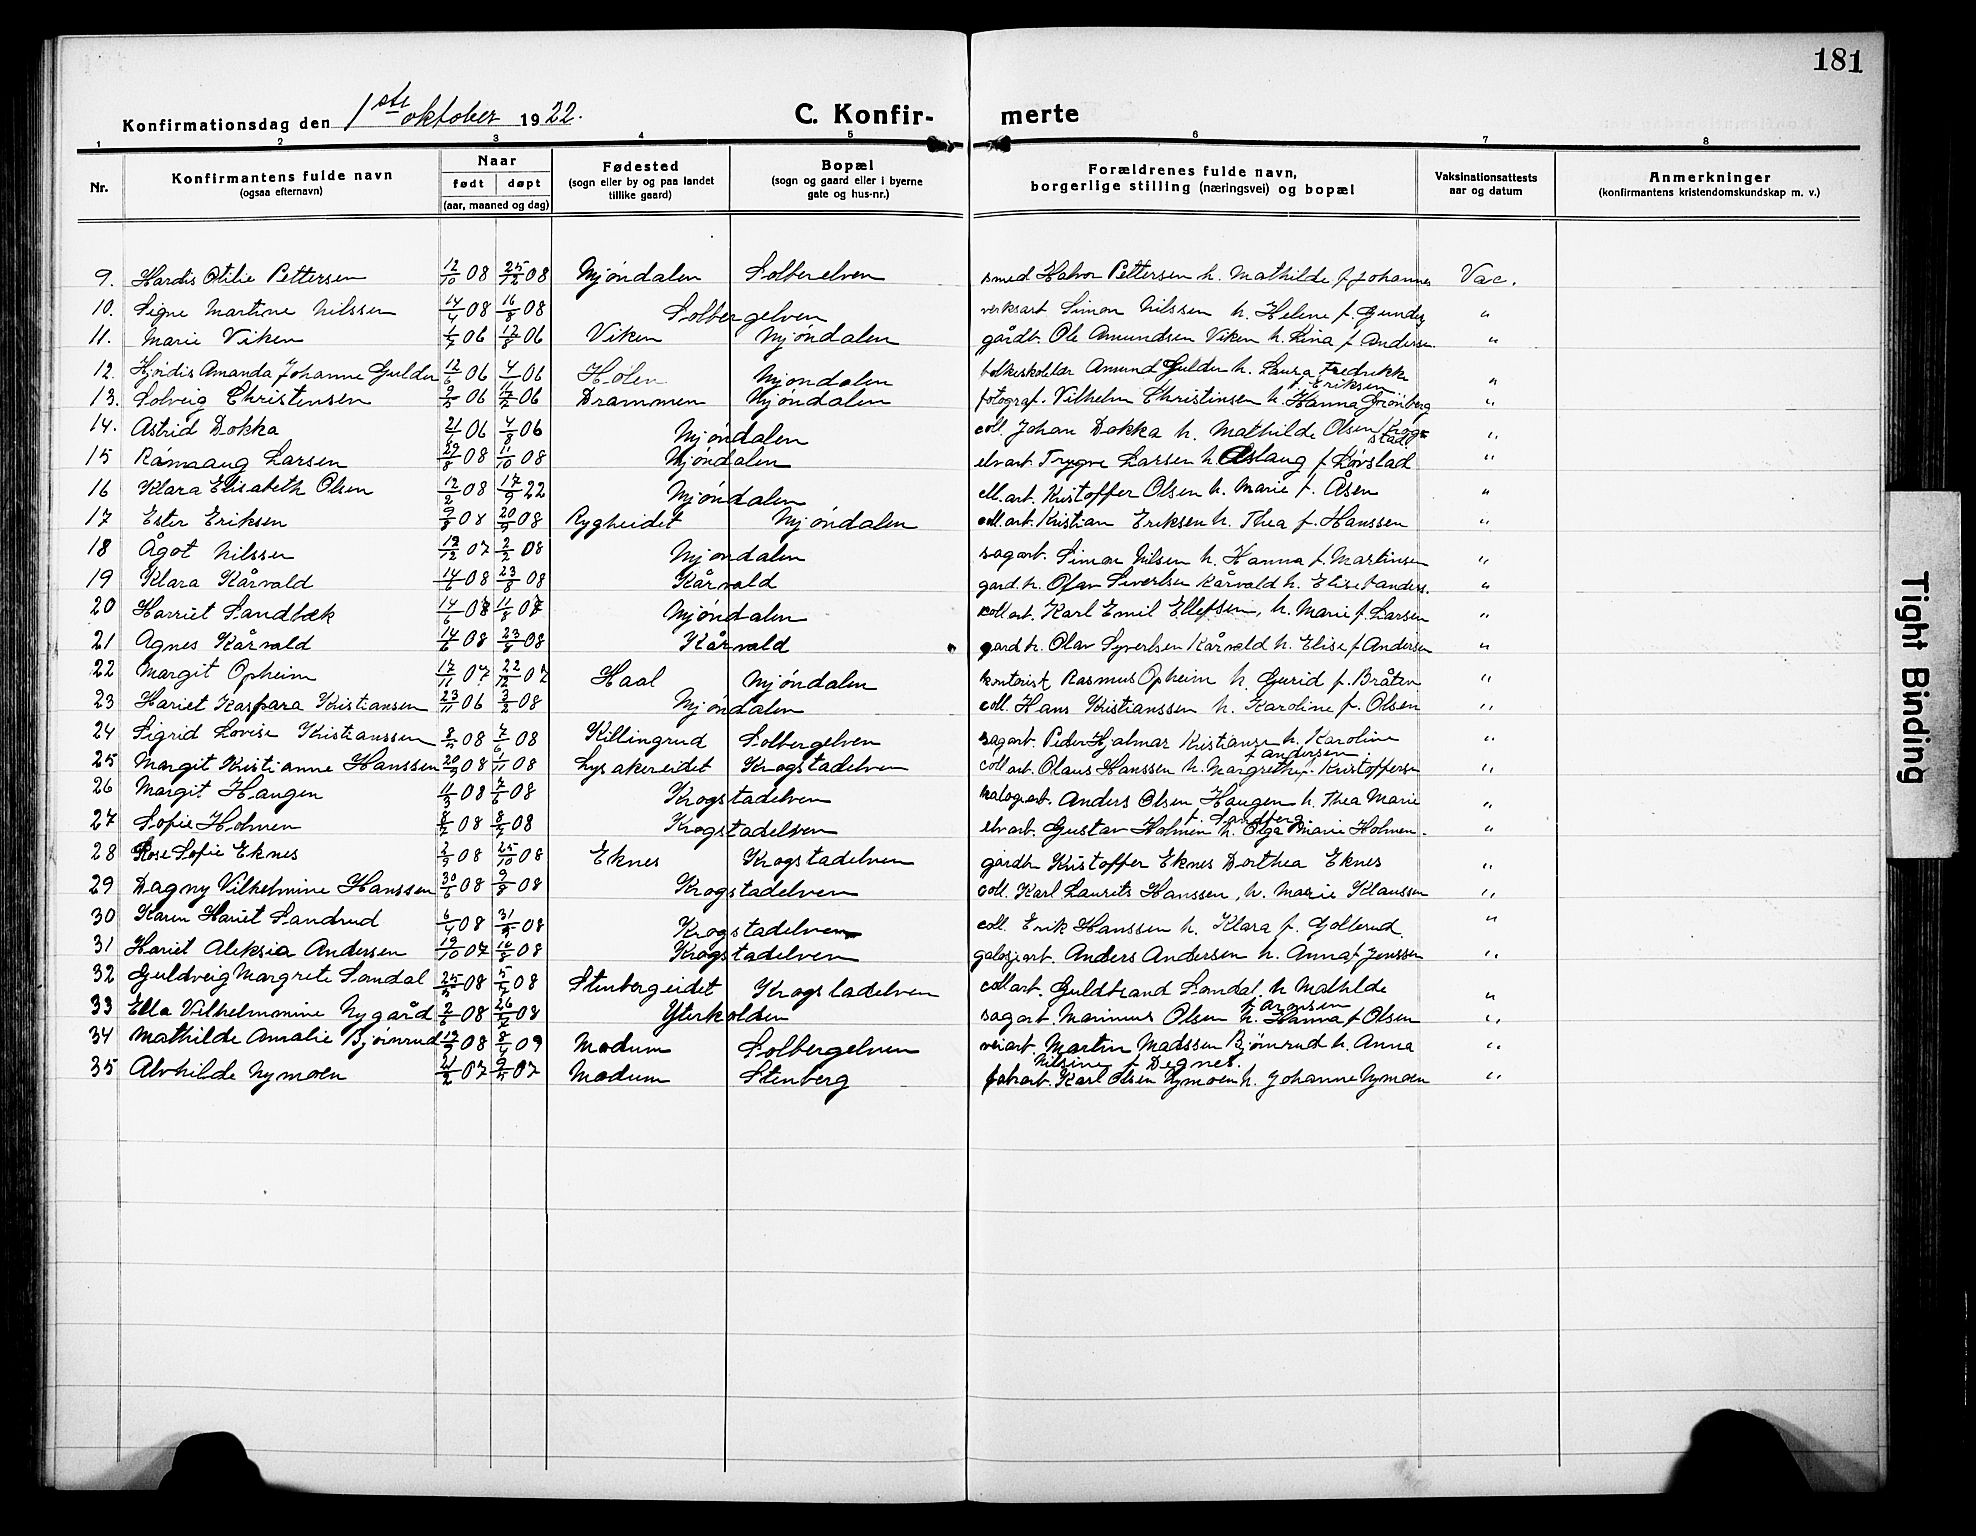 181
Konfirmationsdag den 1ste oktober 1922.
C. Konfirmerte
1 2 3 4 5 6 7 8
Nr. Konfirmantens fulde navn (ogsaa efternavn) Naar født døpt (aar, maaned og dag) Fødested (sogn eller by og paa landet tillike gaard) Bopæl (sogn og gaard eller i byerne gate og hus-nr.) Forældrenes fulde navn, borgerlige stilling (næringsvei) og bopæl Vaksinationsattests aar og datum Anmerkninger (konfirmantens kristendomskundskap m. v.)
9. Hardis Otilie Pettersen 12/10 08 25/12 08 Mjøndalen Solberelven smed Halvor Pettersen h. Mathilde f Johannes Vac.
10. Signe Martine Nilssen 14/4 08 16/8 08 Solbergelven verksarb Simon Nilssen h. Helene f. Gunders "
11. Marie Viken 06 06 Viken Mjøndalen gårdb. Ole Amundsen Viken h. Lina f Andersen. "
12. Hjørdis Amanda Johanne Gulden 12/6 06 06 Holen Mjøndalen Amund Gulden h. Laura Fredrikke f. Eriksen "
13. Solveig Christensen 06 06 Drammen Mjøndalen fotograf. Vilhelm Christinsen h. Hanna Grønberg "
14. Astrid Dokka 21/6 06 4/8 06 Mjøndalen coll. Johan Dokka h. Mathilde Olsen Krogstad "
15 Larsen 29/8 08 11/10 08 Mjøndalen elvarb. Trygve Larsen h Aslaug f Løvstad "
16 Klara Elisabeth Olsen 12/2 08 17/9 22 Mjøndalen cell. arb. Kristoffer Olsen h. Marie f. Åsen "
17 Ester Eriksen 08 08 Rygheidet Mjøndalen coll. arb. Kristian Eriksen h. Thea f. Hanssen "
18 Ågot Nilssen 19/12 07 2/2 08 Mjøndalen sagarb. Simon Nilsen h. Hanna f. Martinsen "
19 Klara Kårvald 14/6 08 23/8 08 Kårvald gard. h. Olav Siverlsen Kårvald h. Elise f anders. "
20 Harriet Sandbæk 14/6 07 11/8 07 Mjøndalen coll art. Karl Emil Ellefsen, h. Marie f. Larsen "
21 Agnes Kårvald 14/6 08 23/8 08 Kårvald gard h. Olav Syverlsen Kårvald h. Elise f Andersen "
22 Margit Opheim 17/11 07 22/12 07 Haal Mjøndalen kontorist Rasmus Opheim h. Gurid f. Bråten "
23 Hariet Kaspara Kristiansen 23/11 06 3/2 08 Mjøndalen coll. Hans Kristianssen h. Karoline f. Olsen "
24 Sigrid Lovise Kristianssen 08 7/6 08 Killingrud Solbergelven sagarb. Peder Hjalmar h. Karoline f andersen "
25 Margit Kristianne Hanssen 20/9 08 1/11 08 Lysakereidet Krogstadelven coll art. Olaus Hanssen h. Margrethe f. Kristoffersen "
26 Margit Haugen 11/3 08 7/6 08 Krogstadelven Anders Olsen Haugen h. Thea Marie f. Sandberg "
27 Sofie Holmen 08 08 Krogstadelven elvarb. Gustav Holmen h. Olga Marie Holmen. "
28 Rose Sofie Eknes 2/9 08 25/10 08 Eknes Krogstadelven gårdb Kristoffer Eknes Dorthea Eknes "
29 Dagny Vilhelmine Hanssen 30/6 08 9/8 08 Krogstadelven coll. Karl Laurits Hanssen, h. Marie Klaussen "
30 Karen Hariet Sandrud 6/4 08 31/5 08 Krogstadelven coll. Erik Hanssen h. Klara f. Gollerud. "
31 Hariet Aleksia Andersen 19/10 07 16/8 08 Krogstadelven galosjearb. Anders Andersen h. Anna f Jenssen "
32 Guldveig Margrete Sandal 25/5 08 5/7 08 Stenbergeidet Krogstadelven coll art. Guldbrand Sandal, h Mathilde f. aronsen "
33 Ella Vilhelmmine Nygård 2/6 08 26/7 08 Yterkolden sagarb. Marinus Olsen h. Hanna f Olsen "
34 Mathilde Amalie Bjørnrud 19/9 08 8/4 09 Modum Solbergelven veiarb. Martin Madssen Bjørnrud h. Anna Nilsine f. Degnes. "
35 Alvhilde Nymoen 21/2 07 9/5 07 Modum Stenberg fabr.arb. Karl Olsen Nymoen h. Johanne Nymoen "
Tight Binding